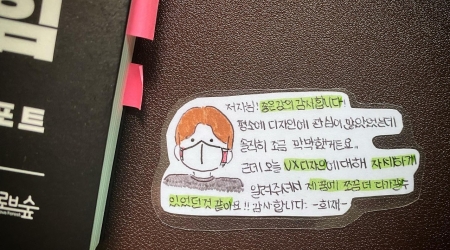 임
포트
로브숲
저자님! 좋은강의 감사합니다
평소에 디자인에 관심이 많았었는데
솔직히 조금 막막했거든요..
근데 오늘 UX디자인에 대해 자세하게
알려주셔서 제 꿈에 쪼끔 더 다가갈수
있었던 것 같아요!! 감사합니다. -희재-